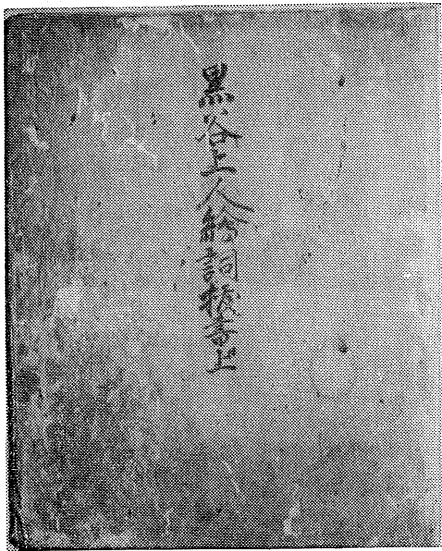 黒谷上人繪詞抜書上